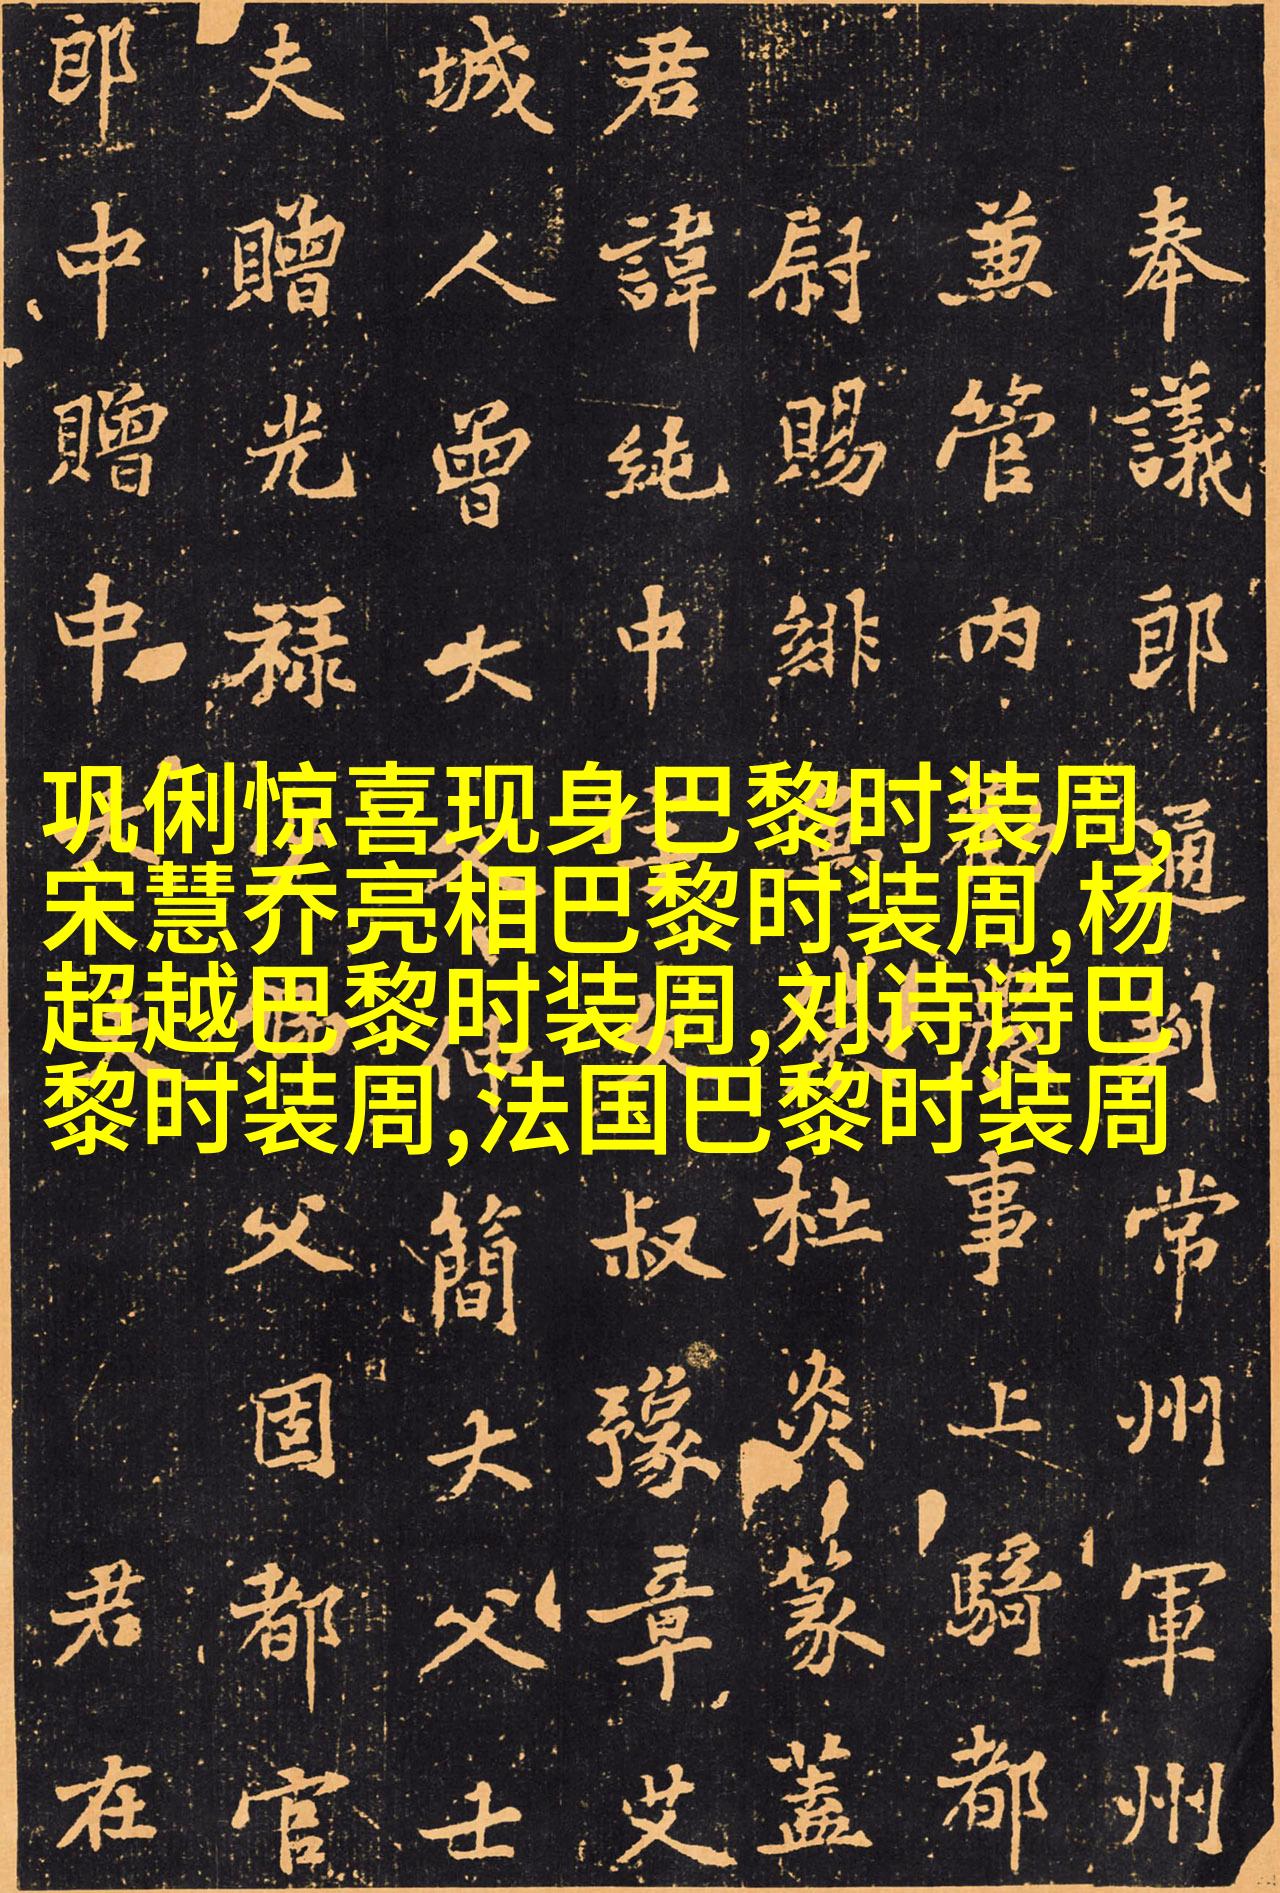 奉議郎通判常州軍州
兼管内農事上騎都
尉賜緋杜炎篆蓋
君諱純中叔豫章艾
城人曾大仲簡大父士
夫贈光禄父固都官
郎中贈中大夫君在
巩俐惊喜现身巴黎时装周,
宋慧乔亮相巴黎时装周,杨
超越巴黎时装周,刘诗诗巴
黎时装周,法国巴黎时装周